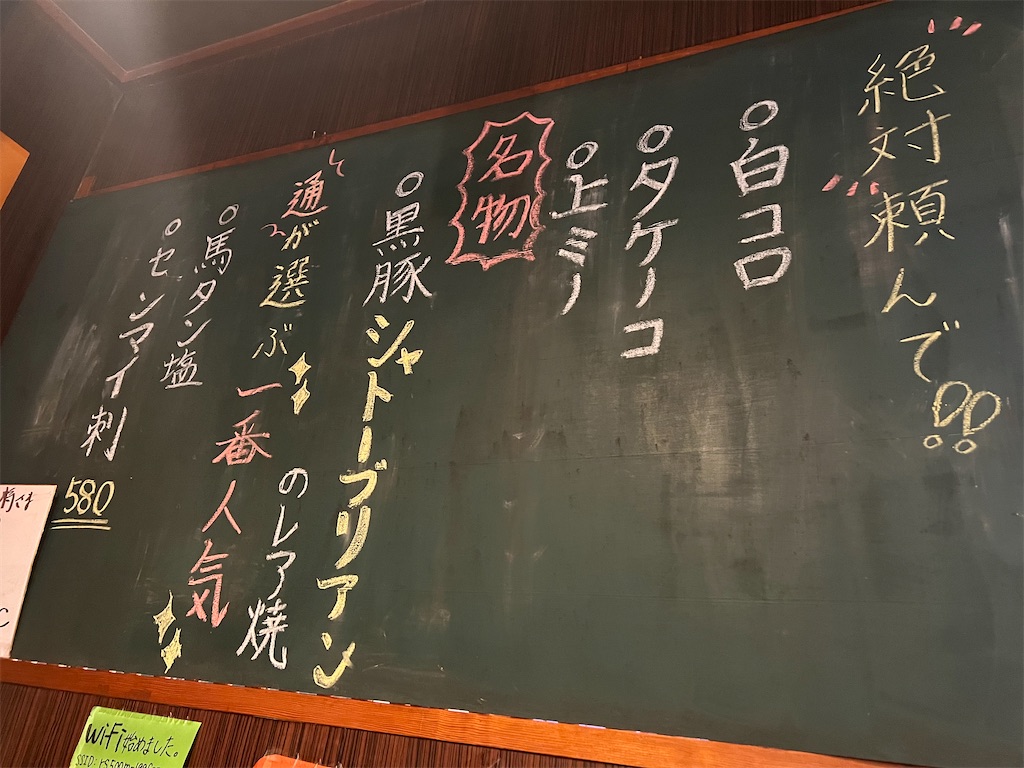 絶対頼んで!!
○白コロ
○タケノコ
○上ミノ
名物
○黒豚シャトーブリアン
のレア焼
通が選ぶ一番人気
○馬タン塩
○センマイ刺
580
WiFi始めました。